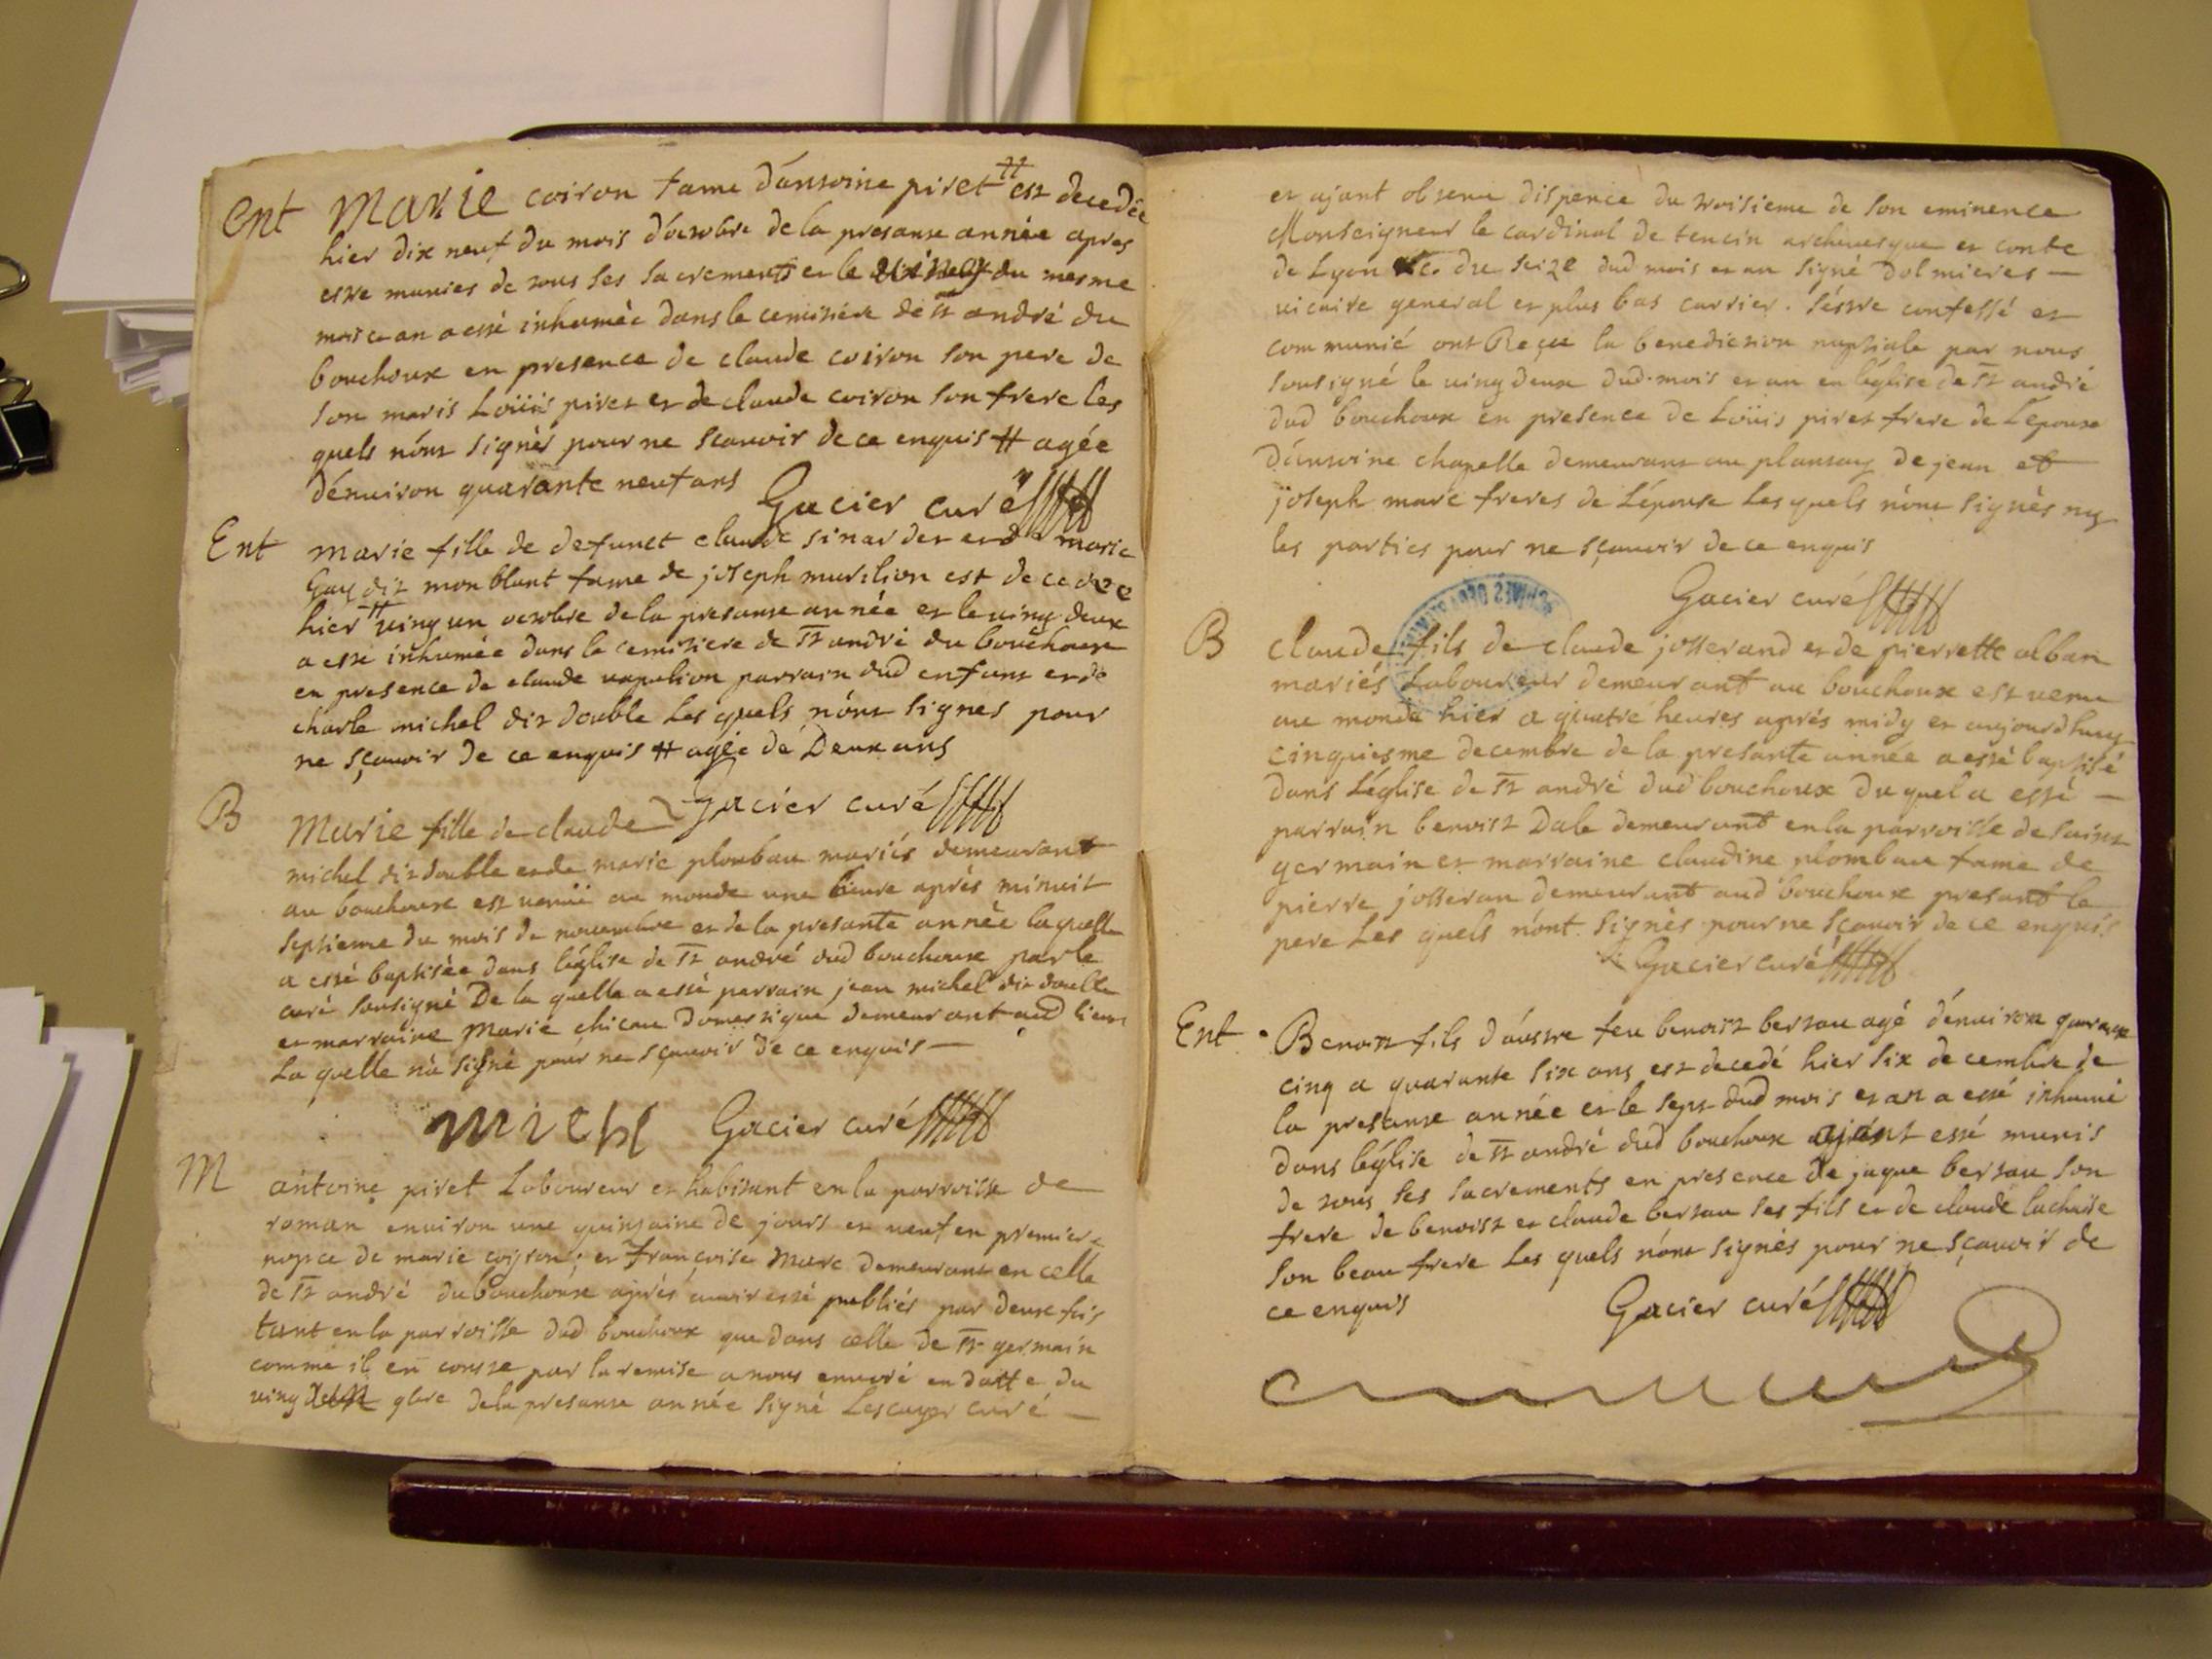 Ent Marie coiron fame d'antoine piret # est decedée
hier dix neuf du mois d'octobre de la presante année apres
estre munies de tous ses sacrements et le du mesme
mois et an a esté inhumée dans le cemitiére de st andré du
bouchoux en presence de claude coiron son pere de
son maris Loüis piret et de claude coiron son frere les
quels n'ont signés pour ne scavoir de ce enquis # agée
d'enuiron quarante neuf ans
Gacier curé
Ent marie fille de defunct claude sinardet et de marie
Gay dit monblant fame de joseph murilion est decedée
hier # ving un octobre de la presante année et le ving deux
a esté inhumée dans le cemitiere de st andré du bouchoux
en presence de claude parrain dud enfant et de
charle michel dit double Les quels n'ont signes pour
ne sçavoir de ce enquis # agée de Deux ans
Gacier curé
B Marie fille de claude
michel dit double et de marie plonbau mariés demeurant
au bouchoux est venüe au monde une heure aprés minuit
septieme du mois de novembre et de la presante année laquelle
a esté baptisée dans l'église de st andré dud bouchoux par le
curé sousigné De la quelle a esté parrain jean michel dit double
et marraine Marie chicau domestique demeurant aud lieux
La quelle n'a signé pour ne sçavoir de ce enquis —
michel Gacier curé
M antoine piret Laboureur et habitant en la parroisse de
roman enuiron une quinsaine de jours et veuf en premiere
nopce de marie coyron; et françoise Marc demeurant en celle
de st andré du bouchoux aprés avoir esté publiés par deux fois
tant en la parroisse dud bouchoux que dans celle de st germain
comme il en conste par la remise a nous envoié en datte du
ving de la presante année signé Lescuyer curé —
et ajant obtenu dispence du troisieme de son eminence
Monseigneur le cardinal de tencin archeuesque et conte
de Lyon &c. du seize dud mois et an signé Dolmieres —
vicaire general et plus bas carrier. s'éstre confessé et
communié ont Reçu la benediction nuptiale par nous
sousigné le ving deux dud. mois et an en l'église de st andré
dud bouchoux en presence de Loüis piret frere de L'epoux
D'antoine chapelle demeurant au plantay de jean et
joseph marc freres de L'épouse Les quels n'ont signés ny
les parties pour ne sçavoir de ce enquis
Gacier curé
B claude fils de claude josserand et de pierrette alban
mariés Laboureur demeurant au bouchoux est venu
au monde hier a quatre heures aprés midy et aujourdhuy
cinquiesme decembre de la presante année a esté baptisé
dans L'église de st andré dud bouchoux du quel a esté —
parrain benoist Dale demeurant en la parroisse de saint
germain et marraine claudine plombau fame de
pierre josseran demeurant aud bouchoux presant le
pere Les quels n'ont signés pour ne sçavoir de ce enquis
Gacier curé
Ent Benoist fils d'autre feu benoist bersau agé d'enuiron quarante
cinq a quarante six ans est decedé hier six decembre de
la presante année et le sept dud mois et an a esté inhumé
dans l'église de st andré dud bouchoux ajant esté munis
de tous ses sacrements en presence de jaque bersau son
frere de benoist et claude bersau ses fils et de claude lachaise
son beau frere Les quels n'ont signés pour ne sçavoir de
ce enquis
Gacier curé